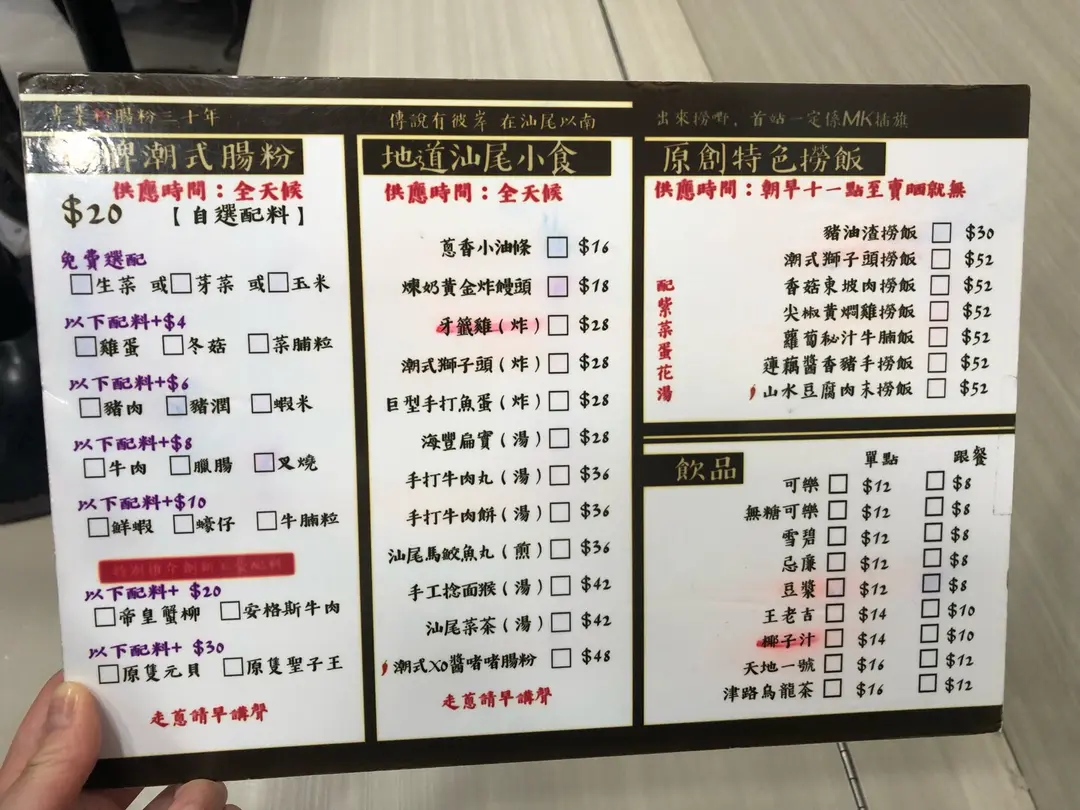 專業粉腸粉三十年
牌潮式腸粉
供應時間：全天候
$20 【自選配料】
免費選配
生菜 或 芽菜 或 玉米
以下配料+$4
雞蛋 冬菇 菜脯粒
以下配料+$6
豬肉 豬潤 蝦米
以下配料+$8
牛肉 臘腸 叉燒
以下配料+$10
鮮蝦 蠔仔 牛腩粒
以下配料+ $20
帝皇蟹柳 安格斯牛肉
以下配料+ $30
原隻元貝 原隻聖子王
走蔥請早講聲
傳說有彼岸 在汕尾以南
地道汕尾小食
供應時間：全天候
蔥香小油條 $16
煉奶黃金炸饅頭 $18
牙籤雞(炸) $28
潮式獅子頭(炸) $28
巨型手打魚蛋(炸) $28
海豐扁實(湯) $28
手打牛肉丸(湯) $36
手打牛肉餅(湯) $36
汕尾馬鮫魚丸(煎) $36
手工捻面猴(湯) $42
汕尾菜茶(湯) $42
潮式XO醬啫啫腸粉 $48
走蔥請早講聲
出來撈嘢，首站一定係MK插旗
原創特色撈飯
供應時間：朝早十一點至賣晒就無
配紫菜蛋花湯
豬油渣撈飯 $30
潮式獅子頭撈飯 $52
香菇東坡肉撈飯 $52
尖椒黃燜雞撈飯 $52
蘿蔔秘汁牛腩飯 $52
蓮藕醬香豬手撈飯 $52
山水豆腐肉末撈飯 $52
飲品 單點 跟餐
可樂 $12 $8
無糖可樂 $12 $8
雪碧 $12 $8
忌廉 $12 $8
豆漿 $12 $8
王老吉 $14 $10
椰子汁 $14 $10
天地一號 $16 $12
津路烏龍茶 $16 $12